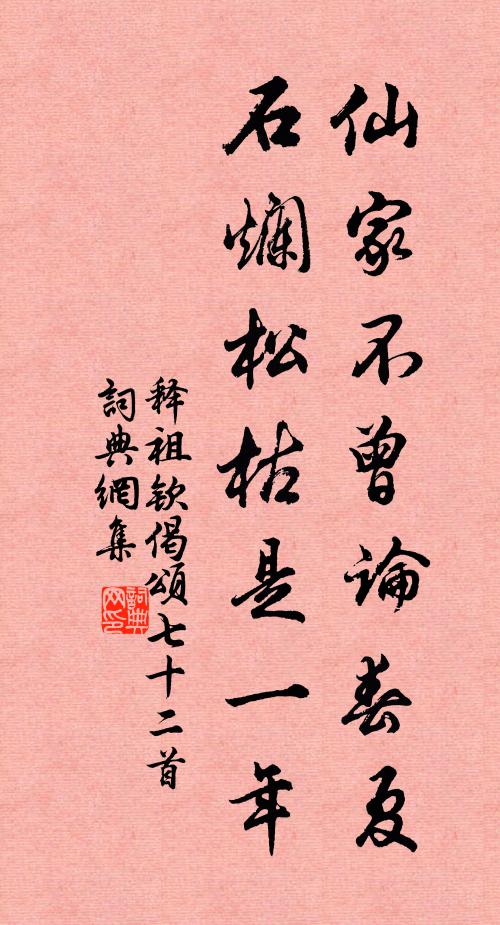 仙家不曾論春夏
石爛松枯是一年
释祖钦偈頌七十二首
詞典網集
詞典网印